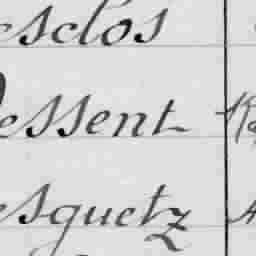 esclos
Dessent
esquetz